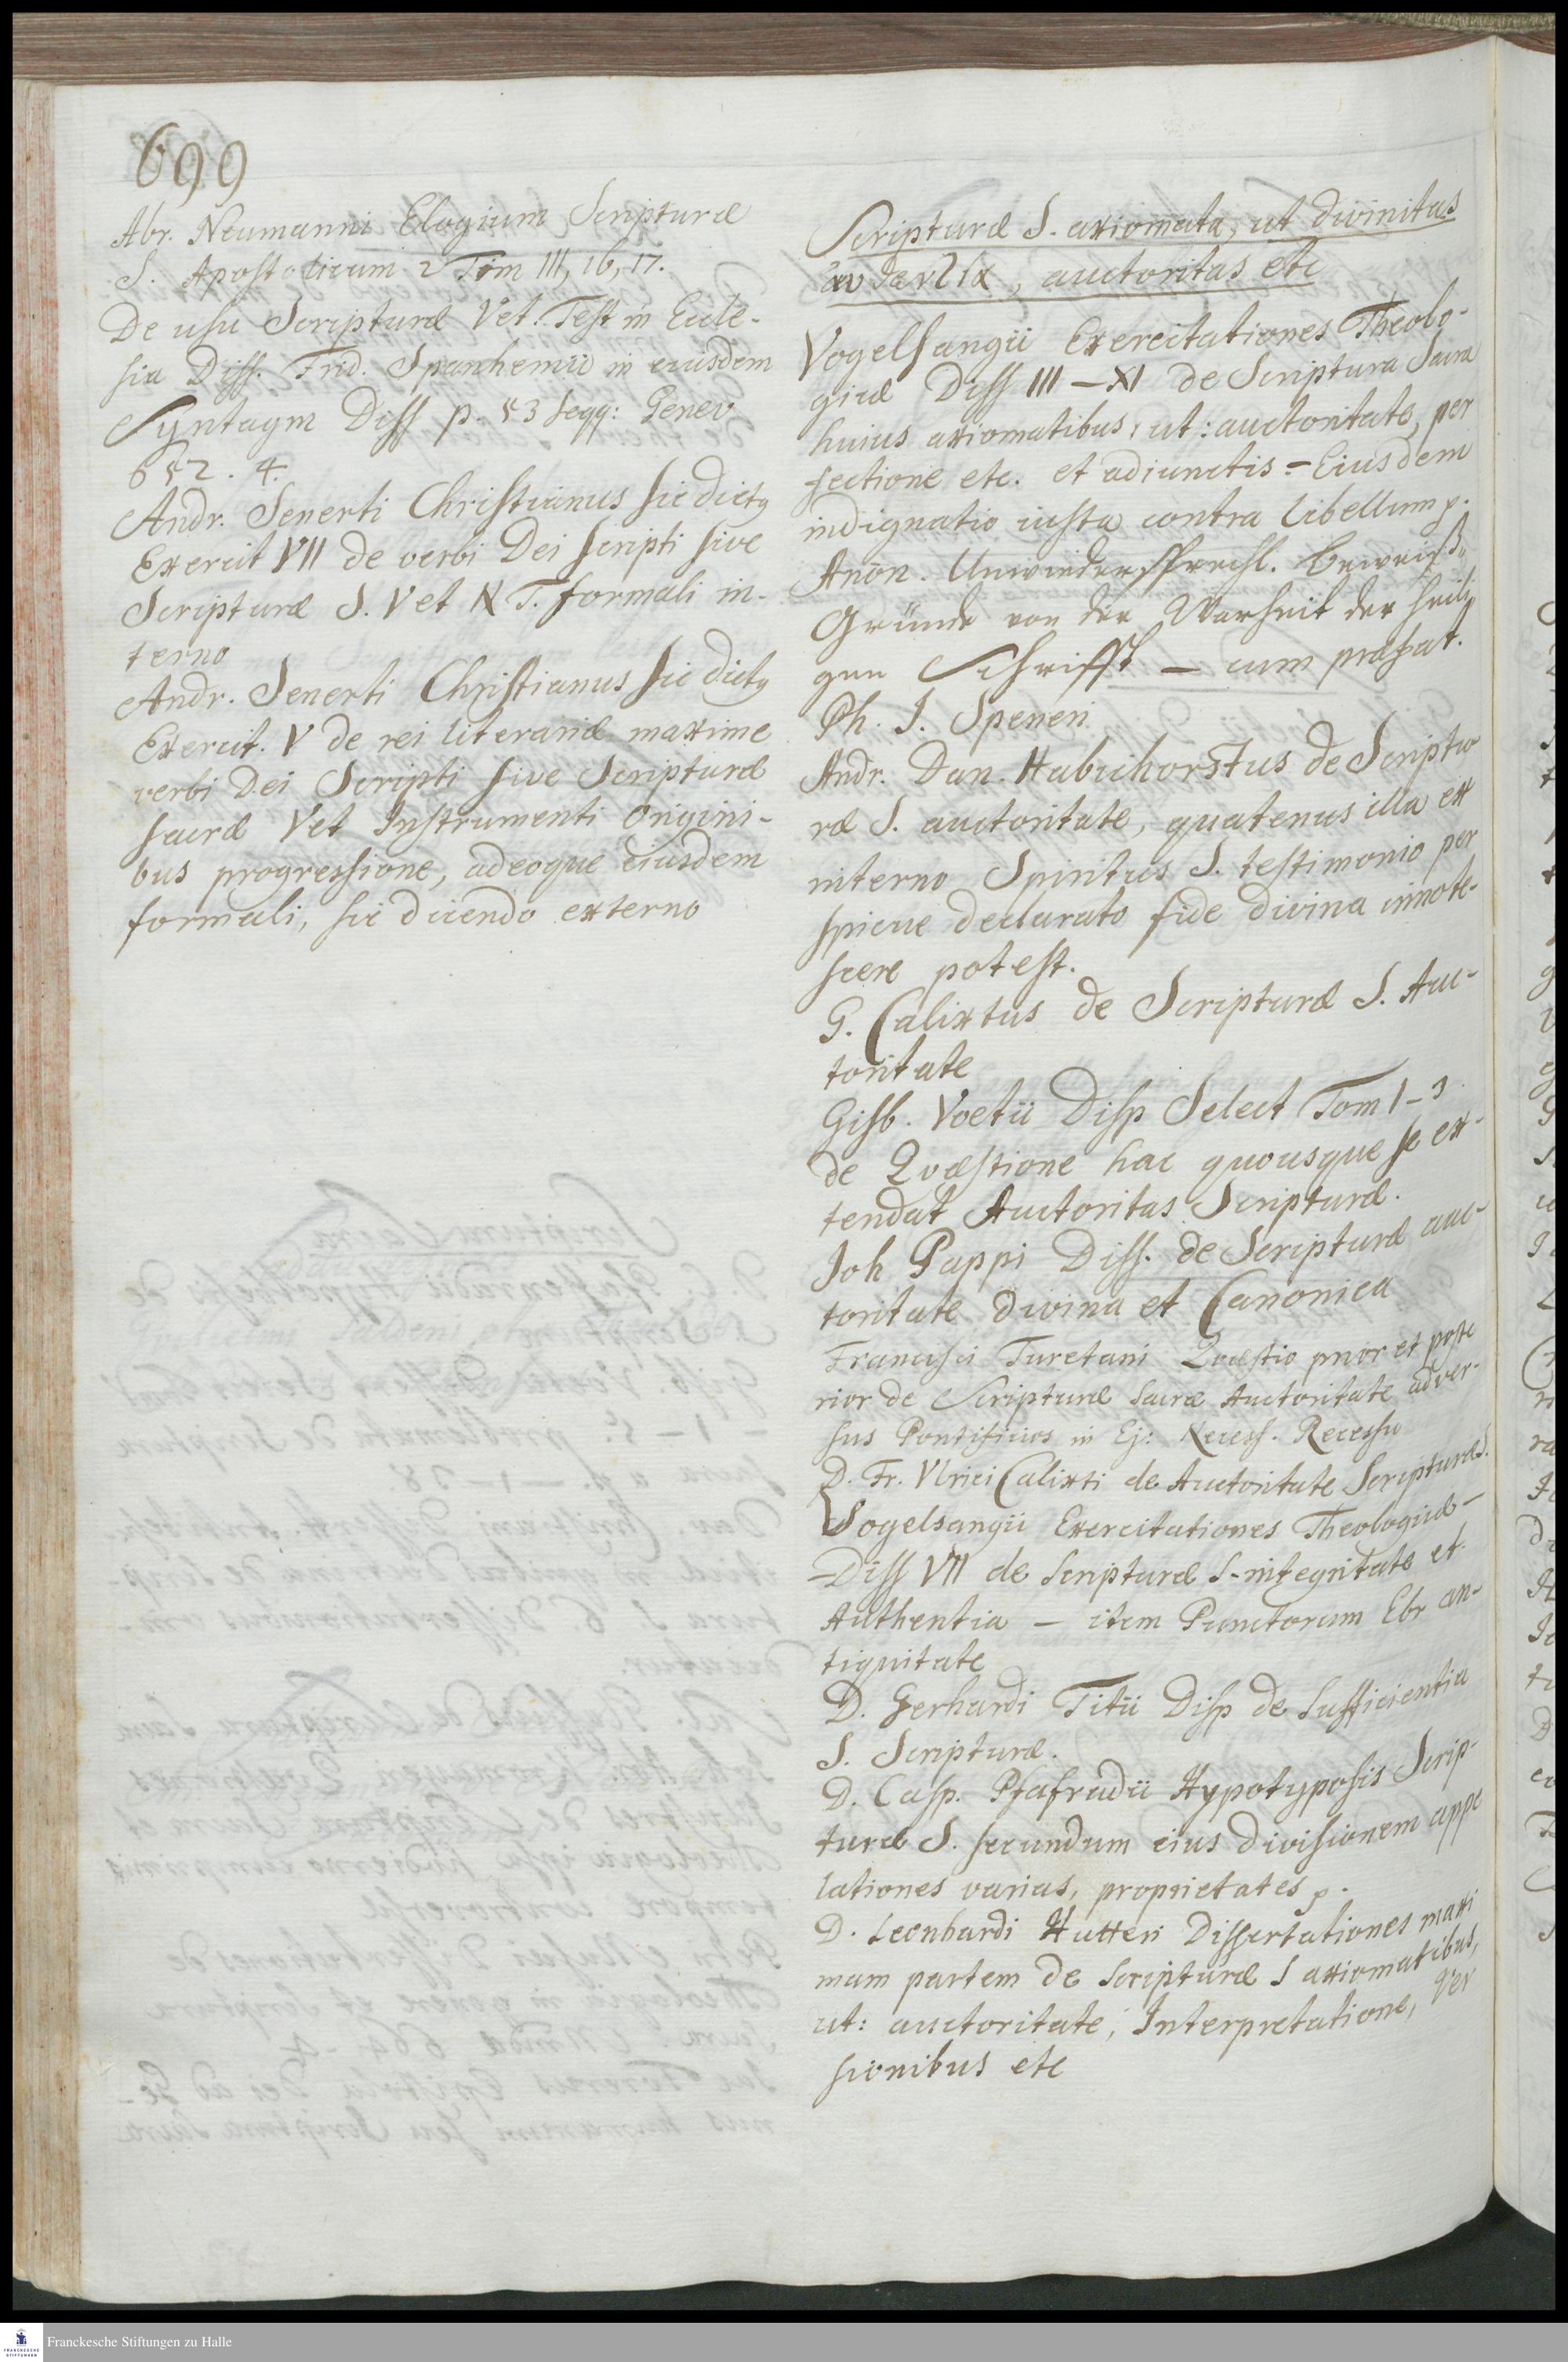 699
Abr. Neumanni Elogium Scripturæ
S. Apostolicum 2 Tim III, 16, 17.
De usu Scripturæ Vet. Test in Eccle-
sia Diss. Frid. Spanhemii in eiusdem
Syntagm Diss p. 53 seqq: Genev
652. 4.
Andr. Senerti Christianus sic dictq
Exercit VII de verbi Dei scripti sive
Scripturæ S. V et N T. formali in-
terno
Andr. Senerti Christianus sic dictq
Exercit. V de rei literariæ maxime
verbi Dei Scripti sive Scripturæ
sacræ Vet Instrumenti Origini-
bus progressione, adeoque eiusdem
formali, sic dicendo externo
Scripturæ S. axiomata, ut divinitas
auctoritas etc
Vogelsangii Exercitationes Theolo-
gicæ Diss III - XI de Scriptura Sacra
huius axiomatibus, ut: auctoritate, per
fectione etc. et adiunctis = Eiusdem
indignatio iusta contra libellum p.
Anon. Unwiedersprechl. Beweiß-
Gründe von der Warheit der heili
gen Schrifft - cum præfat.
Ph. J. Speneri
Andr. Dan. Habichorstus de Scriptu
ræ S. auctoritate, quatenus illa ex
interno Spiritus S. testimonio per
spicue declarato fide divina innote-
scere potest.
G. Calixtus de Scripturæ S. Auc-
toritate
Gisb. Voetii Disp Select Tom 1-3
de Qvæstione hac quousque se ex-
tendat Auctoritas Scripturæ.
Joh Pappi Diss. de Scripturæ auc-
toritate Divina et Canonica
Francisci Turetani Qvæstio prior et poste
rior de Scripturæ Sacræ Auctoritate adver-
sus Pontificios in Ej: Necess. Recessu
D. Fr. Ulrici Calixti de Auctoritate Scripturæ S.
Vogelsangii Exercitationes Theologicæ -
- Diss VII de Scripturæ S. integritate et
Authentia - item Punctorum Ebr an-
tiquitate
D. Gerhardi Titii Disp de Sufficientia
S. Scripturæ.
D. Casp. Pfafradii Hypotyposis Scrip-
turæ S. secundum eius divisionem appe
lationes varias, proprietates p.
D. Leonhardi Hutteri Dissertationes maxi
mam partem de Scripturæ S axiomatibus,
ut: auctoritate, Interpretatione, Ver
sionibus etc
Franckesche Stiftungen zu Halle